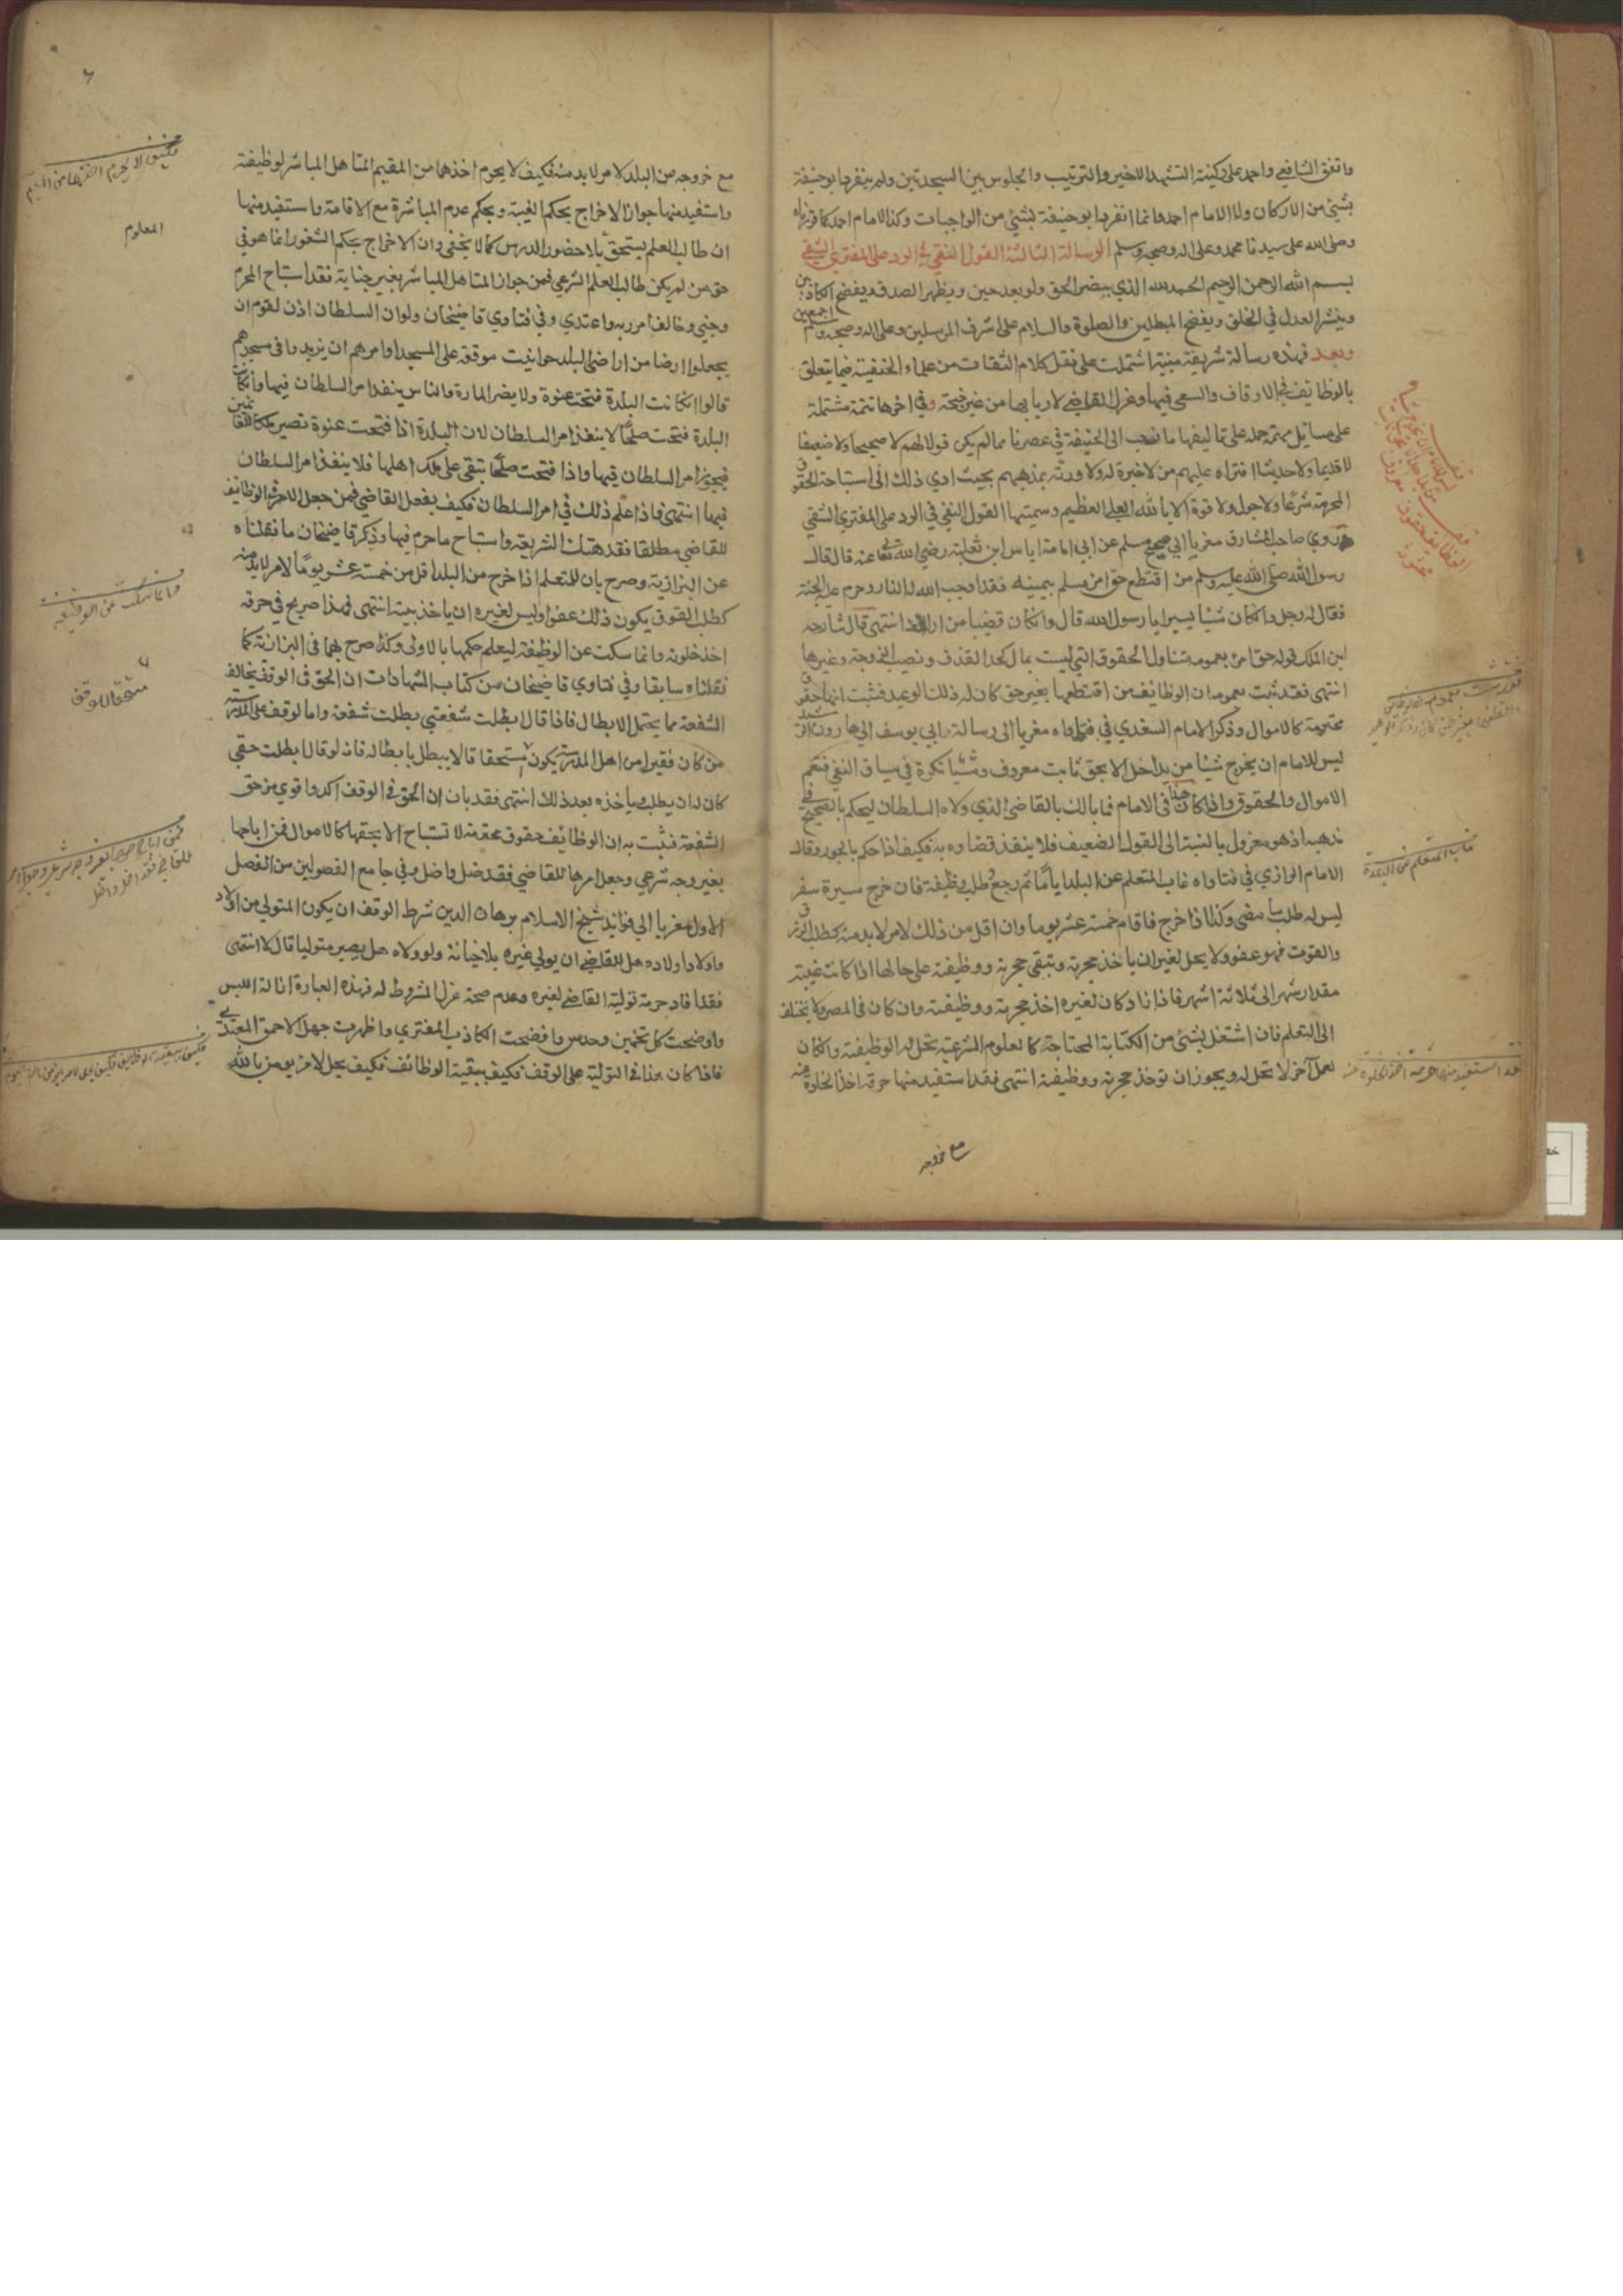 واتفق الشافعي واحمد على ركنية التشهد الاخير والترتيب والجلوس بين السجدتين ولم ينفرد ابو حنيفة
بشيء من الاركان ولا الامام احمد وانما انفرد ابو حنيفة بشيء من الواجبات وكذا الامام احمد كما قررناه
وصلى الله على سيدنا محمد وعلى اله وصحبه وسلم الرسالة الثالثة القول النقي في الرد على المفتري الشقي
بسم الله الرحمن الرحيم الحمد لله الذي ينصر الحق ولو بعد حين ويظهر الصدق ويفضح الكاذبين
وينشر العدل في الخلق ويفضح المبطلين والصلوة والسلام على اشرف المرسلين وعلى اله وصحبه وسلم اجمعين
وبعد فهذه رسالة شريفة منيفة اشتملت على نقل كلام الثقات من علماء الحنفية فيما يتعلق
بالوظائف في الاوقاف والسعي فيها وعزل القاضي لاربابها من غير جنحة وفي اخرها تتمة مشتملة
على مسائل مهمة حمله على تاليفها ما نسب الى الحنيفة في عصرنا مما لم يكن قولا لهم لا صحيحا ولا ضعيفا
لا قديما ولا حديثا افتراه عليهم من لا خبرة له ولا دربة بمذهبهم بحيث ادي ذلك الى استباحة الحقوق
المحرمة شرعا ولا حول ولا قوة الا بالله العلي العظيم وسميتها القول النقي في الرد على المفتري الشقي
روي صاحب المشارق مغريا الي صحيح مسلم عن ابي امامة اياس ابن ثعلبة رضي الله تعالى عنه قال قال
رسول الله صلى الله عليه وسلم من اقتطع حق امرئ مسلم بيمينه فقد اوجب الله له النار وحرم عليه الجنة
فقال له رجل وان كان شيئا يسيرا يا رسول الله قال وان كان قضيبا من اراك انتهى قال شارحه
ابن الملك قوله حق امرئ بعمومه متناول الحقوق التي ليست بمال كحد القذف ونصيب الزوجة وغيرها
انتهى فقد ثبت بعمومه ان الوظائف من اقتطعها بغير حق كان له ذلك الوعيد فثبت انها حقوق
محترمة كالاموال وذكر الامام السغدي في فتاواه مغريا الى رسالة ابي يوسف الي هارون الرشيد
ليس للامام ان يخرج شيئا من يد احد الا بحق ثابت معروف وشيئا نكرة في سياق النفي فتعم
الاموال والحقوق واذا كان هذا في الامام فما بالك بالقاضي الذي ولاه السلطان ليحكم بالصحيح في
مذهبه اذ هو معزول بالنسبة الى القول الضعيف فلا ينفذ قضاوه به فكيف اذا حكم بالجور وقال
الامام الرازي في فتاواه غاب المتعلم عن البلد اياما ثم رجع وطلب وظيفة فان خرج مسيرة سفر
ليس له طلب ما مضى وكذا اذا خرج فاقام خمسة عشر يوما وان اقل من ذلك لامر لا بد منه كطلب الرزق
والقوت فهو عفو ولا يحل لغيره ان ياخذ حجرته وتبقى حجرته ووظيفته على حالها اذا كانت غيبته
مقدار شهر الى ثلاثة اشهر فاذا زاد كان لغيره اخذ حجرته ووظيفته وان كان في المصر ولا يختلف
الى التعلم فان اشتغل بشيء من الكتابة المحتاجة كالعلوم الشرعية تحل له الوظيفة وان كان
لعمل آخر لا تحل له ويجوز ان توخذ حجرته ووظيفته انتهى فقد استفيد منها حرمة اخذ الخلوة منه
مع خروجه
غاب المتعلم عن البلدة
قد استفيد منها حرمة اخذ الخلوة منه
مع خروجه من البلد لامر لا بد منه فكيف لا يحرم اخذها من المقيم المتاهل المباشر لوظيفة
واستفيد منها جواز الاخراج بحكم الغيبة وبحكم عدم المباشرة مع الاقامة واستفيد منها
ان طالب العلم يستحق بلا حضور الدرس كما لا يخفى وان الاخراج بحكم الشغور انما هو في
حق من لم يكن طالب العلم الشرعي فمن جواز المتاهل المباشر بغير جناية فقد استباح المحرم
وجنى وخالف امر ربه واعتدي وفي فتاوي قاضيخان ولو ان السلطان اذن لقوم ان
يجعلوا ارضا من اراضي البلد حوانيت موقوفة على المسجد او امرهم ان يزيدوا في مسجدهم
قالوا ان كانت البلدة فتحت عنوة ولا يضر المارة والناس ينفذ امر السلطان فيها وان كانت
البلدة فتحت صلحا لا ينفذ امر السلطان لان البلدة اذا فتحت عنوة تصير ملكا للغانمين
فيجوز امر السلطان فيها واذا فتحت صلحا تبقى على ملك اهلها فلا ينفذ امر السلطان
فيها انتهى فاذا علم ذلك في امر السلطان فكيف بفعل القاضي فمن جعل الامر في الوظائف
للقاضي مطلقا فقد هتك الشريعة واستباح ما حرم فيها وذكر قاضيخان ما نقلناه
عن البزازية وصرح بان المتعلم اذا خرج من البلد اقل من خمسة عشر يوما لامر لا بد منه
كطلب القوت يكون ذلك عفوا وليس لغيره ان ياخذ بيته انتهى فهذا صريح في حرمة
اخذ خلوته وانما سكت عن الوظيفة ليعلم حكمها بالاولى وكذا صرح بهما في البزازية كما
نقلناه سابقا وفي فتاوي قاضيخان من كتاب الشهادات ان الحق في الوقف يخالف
الشفعة مما يحتمل الابطال فاذا قال ابطلت شفعتي بطلت شفعة واما الوقف على المدرسة
من كان فقيرا من اهل المدرسة يكون مستحقا قالا يبطل بابطاله فانه لو قال ابطلت حقي
كان له ان يطلب ياخذه بعد ذلك انتهى فقد بان ان الحق في الوقف اكد واقوي من حق
الشفعة فثبت به ان الوظائف حقوق محترمة لا تستباح الا بحقها كالاموال فمن اباحها
بغير وجه شرعي وجعل امرها للقاضي فقد ضل واضل وفي جامع الفصولين من الفصل
الاول مغريا الي فوائد شيخ الاسلام برهان الدين شرط الوقف ان يكون المتولي من اولاده
واولاد اولاده هل للقاضي ان يولي غيره بلا خيانة ولو ولاه هل يصير متوليا قال لا انتهى
فقد افاد حرمة تولية القاضي لغيره وعدم صحة عزل المشروط له فهذه العبارة ازالة اللبس
واوضحت كل تخمين وحدس وافضحت الكاذب المفتري واظهرت جهل الاحمق المعتدي
فاذا كان هذا في التولية على الوقف فكيف ببقية الوظائف فكيف يحل لامرئ يومن بالله
فكيف لا يحرم اخذها من المقيم
المعلوم
وانما سكت عن الوظيفة
مستحقا للوقف